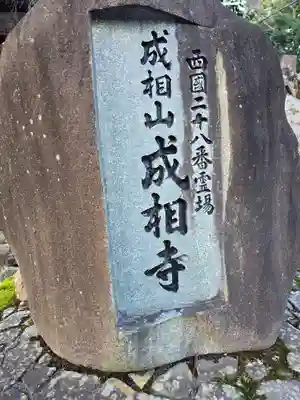 西國二十八番霊場
成相山成相寺